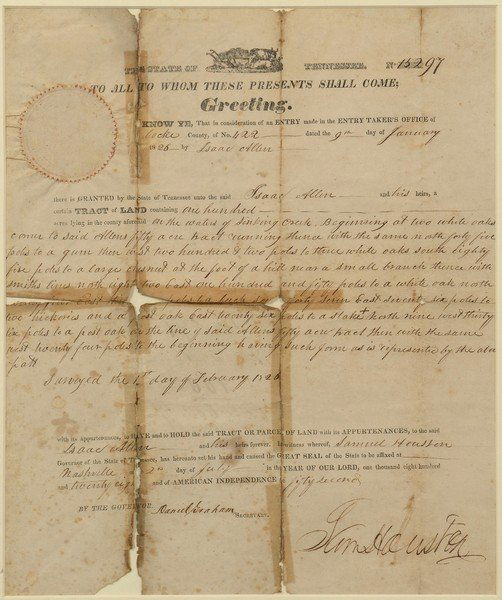 THE STATE OF TENNESSEE. No 15297
TO ALL TO WHOM THESE PRESENTS SHALL COME;
Greeting.
KNOW YE, That in consideration of an ENTRY made in the ENTRY TAKER'S OFFICE of
Cocke County, of No. 422 dated the 9th day of January
1826 Isaac Allen
there is GRANTED by the State of Tennessee unto the said Isaac Allen and his heirs, a
certain TRACT OF LAND containing one hundred
acres lying in the county aforesaid on the waters of Sinking Creek. Beginning at two white oaks
corner to said Allens fifty acre tract running thence with the same north forty five
poles to a gum then west two hundred & two poles to three white oaks south eighty
five poles to a large at the foot of a hill near a small branch thence with
lines north eight two East one hundred and fifty poles to a white oak north
East poles to a East seventy six poles to
two hickories and a East twenty six poles to a stake north nine west thirty
six poles to a post oak on the line of said Allens fifty acre tract then with the same
west twenty four poles to the beginning having such form as is represented by the above
platt
Surveyed the 1st day of February 1826
with its Appurtenances, to HAVE and to HOLD the said TRACT OR PARCEL OF LAND with its APPURTENANCES, to the said
Isaac Allen and his heirs forever. In witness whereof, Samuel Houston
Governor of the State of Tennessee, has hereunto set his hand and caused the GREAT SEAL of the State to be affixed at
Nashville day of July in the YEAR OF OUR LORD, one thousand eight hundred
and twenty eight and of AMERICAN INDEPENDENCE the fifty second
BY THE GOVERNOR,
Daniel Graham SECRETARY.
Sam Houston